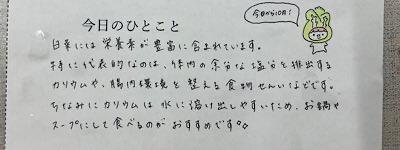 今日のひとこと
今日から10月!
白菜には栄養素が豊富に含まれています。
特に代表的なのは、体内の余分な塩分を排出する
カリウムや、腸内環境を整える食物せんいなどです。
ちなみにカリウムは水に溶け出しやすいため、お鍋や
スープにして食べるのがおすすめです。